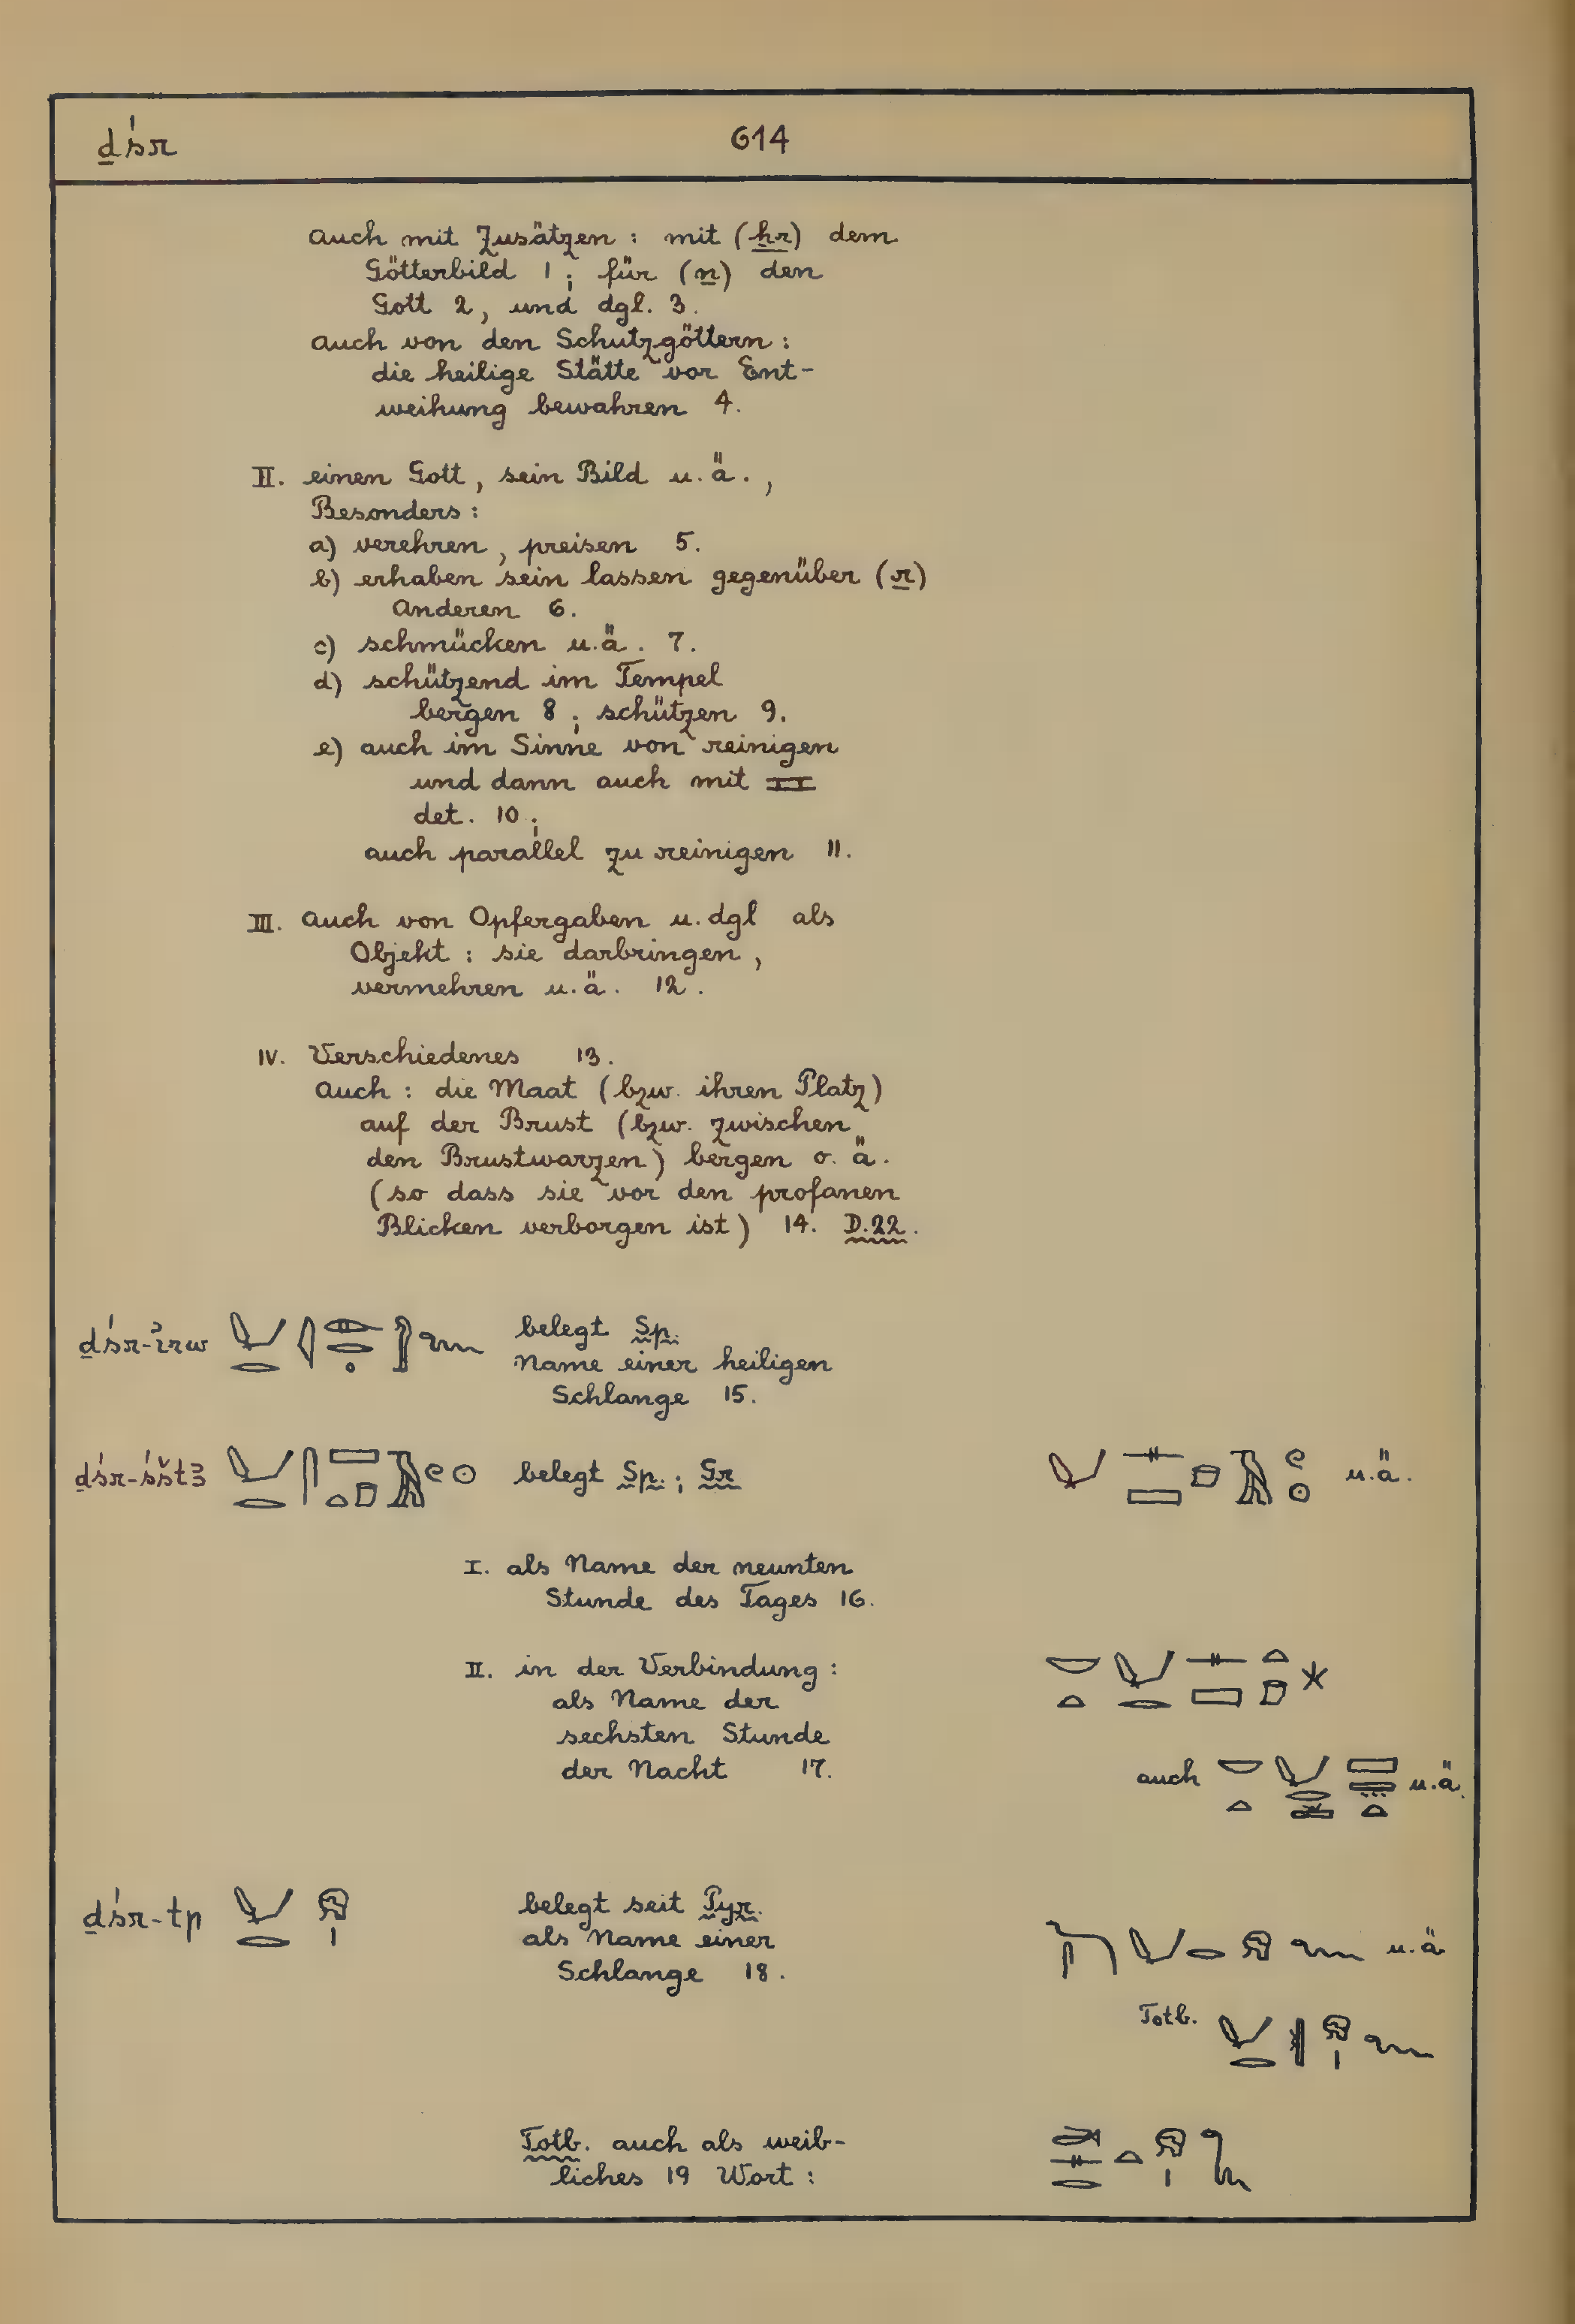 ḏśr 614
auch mit Zusätzen : mit (ẖr) dem
Götterbild 1 ; für (n) den
Gott 2, und dgl. 3.
auch von den Schutzgöttern :
die heilige Stätte vor Ent-
weihung bewahren 4.
II. einen Gott, sein Bild u.ä.,
Besonders :
a) verehren, preisen 5.
b) erhaben sein lassen gegenüber (r)
Anderen 6.
c) schmücken u.ä. 7.
d) schützend im Tempel
bergen 8 ; schützen 9.
e) auch im Sinne von reinigen
und dann auch mit
det. 10 ;
auch parallel zu reinigen 11.
III. auch von Opfergaben u. dgl als
Objekt : sie darbringen,
vermehren u.ä. 12.
IV. Verschiedenes 13.
auch : die Maat (bzw. ihren Platz)
auf der Brust (bzw. zwischen
den Brustwarzen) bergen o. ä.
(so dass sie vor den profanen
Blicken verborgen ist) 14. D.22.
ḏśr-ỉrw belegt Sp.
Name einer heiligen
Schlange 15.
ḏśr-śštꜣ belegt Sp. ; Gr u.ä.
I. als Name der neunten
Stunde des Tages 16.
II. in der Verbindung :
als Name der
sechsten Stunde
der Nacht 17.
auch u.ä.
ḏśr-tp belegt seit Pyr.
als Name einer u.ä
Schlange 18.
Totb.
Totb. auch als weib-
liches 19 Wort :